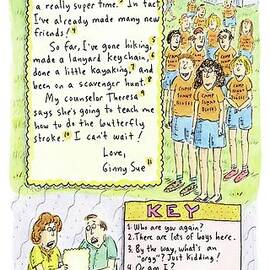 a really super time. In fact
I've already made many new
friends!
So far, I've gone hiking,
made a lanyard keychain,
done a little kayaking, and
been on a scavenger hunt.
My counselor Theresa
says she's going to teach me
how to do the butterfly
stroke.¹⁰ I can't wait!
Love,
Ginny Sue¹¹
KEY
1. Who are you again?
2. There are lots of boys here.
3. By the way, what's an
"orgy"? Just Kidding!
Or am I?